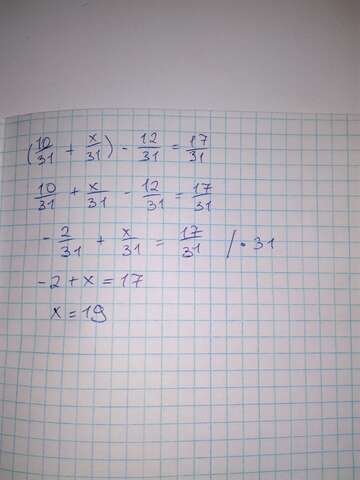 (10/31 + x/31) - 12/31 = 17/31
10/31 + x/31 - 12/31 = 17/31
- 2/31 + x/31 = 17/31 / · 31
- 2 + x = 17
x = 19